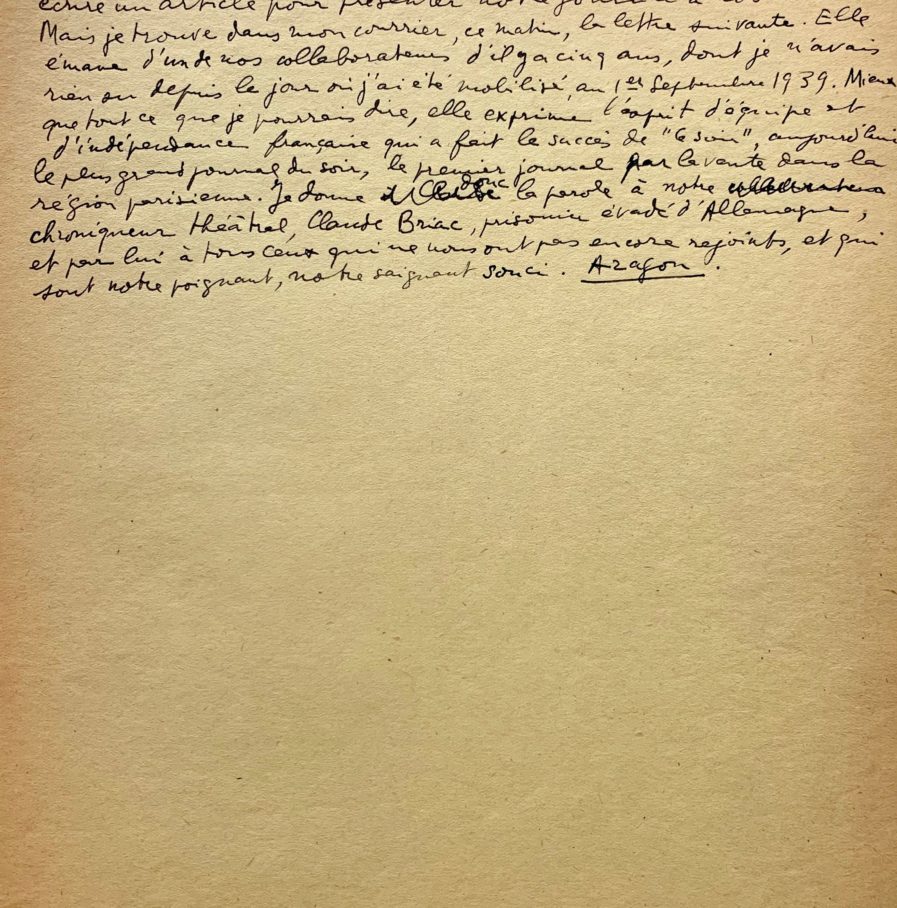 écrire un article pour présenter notre journal à
Mais je trouve dans mon courrier, ce matin, la lettre suivante. Elle
émane d'un de nos collaborateurs d'il y a cinq ans, dont je n'avais
rien su depuis le jour où j'ai été mobilisé, au 1er Septembre 1939. Mieux
que tout ce que je pourrais dire, elle exprime l'esprit d'équipe et
d'indépendance française qui a fait le succès de "Ce soir", aujourd'hui
le plus grand journal du soir, le premier journal par la vente dans la
région parisienne. Je donne donc la parole à notre
chroniqueur théâtral, Claude Briac, prisonnier évadé d'Allemagne,
et par lui à tous ceux qui ne nous ont pas encore rejoints, et qui
sont notre poignant, notre saignant souci. Aragon.